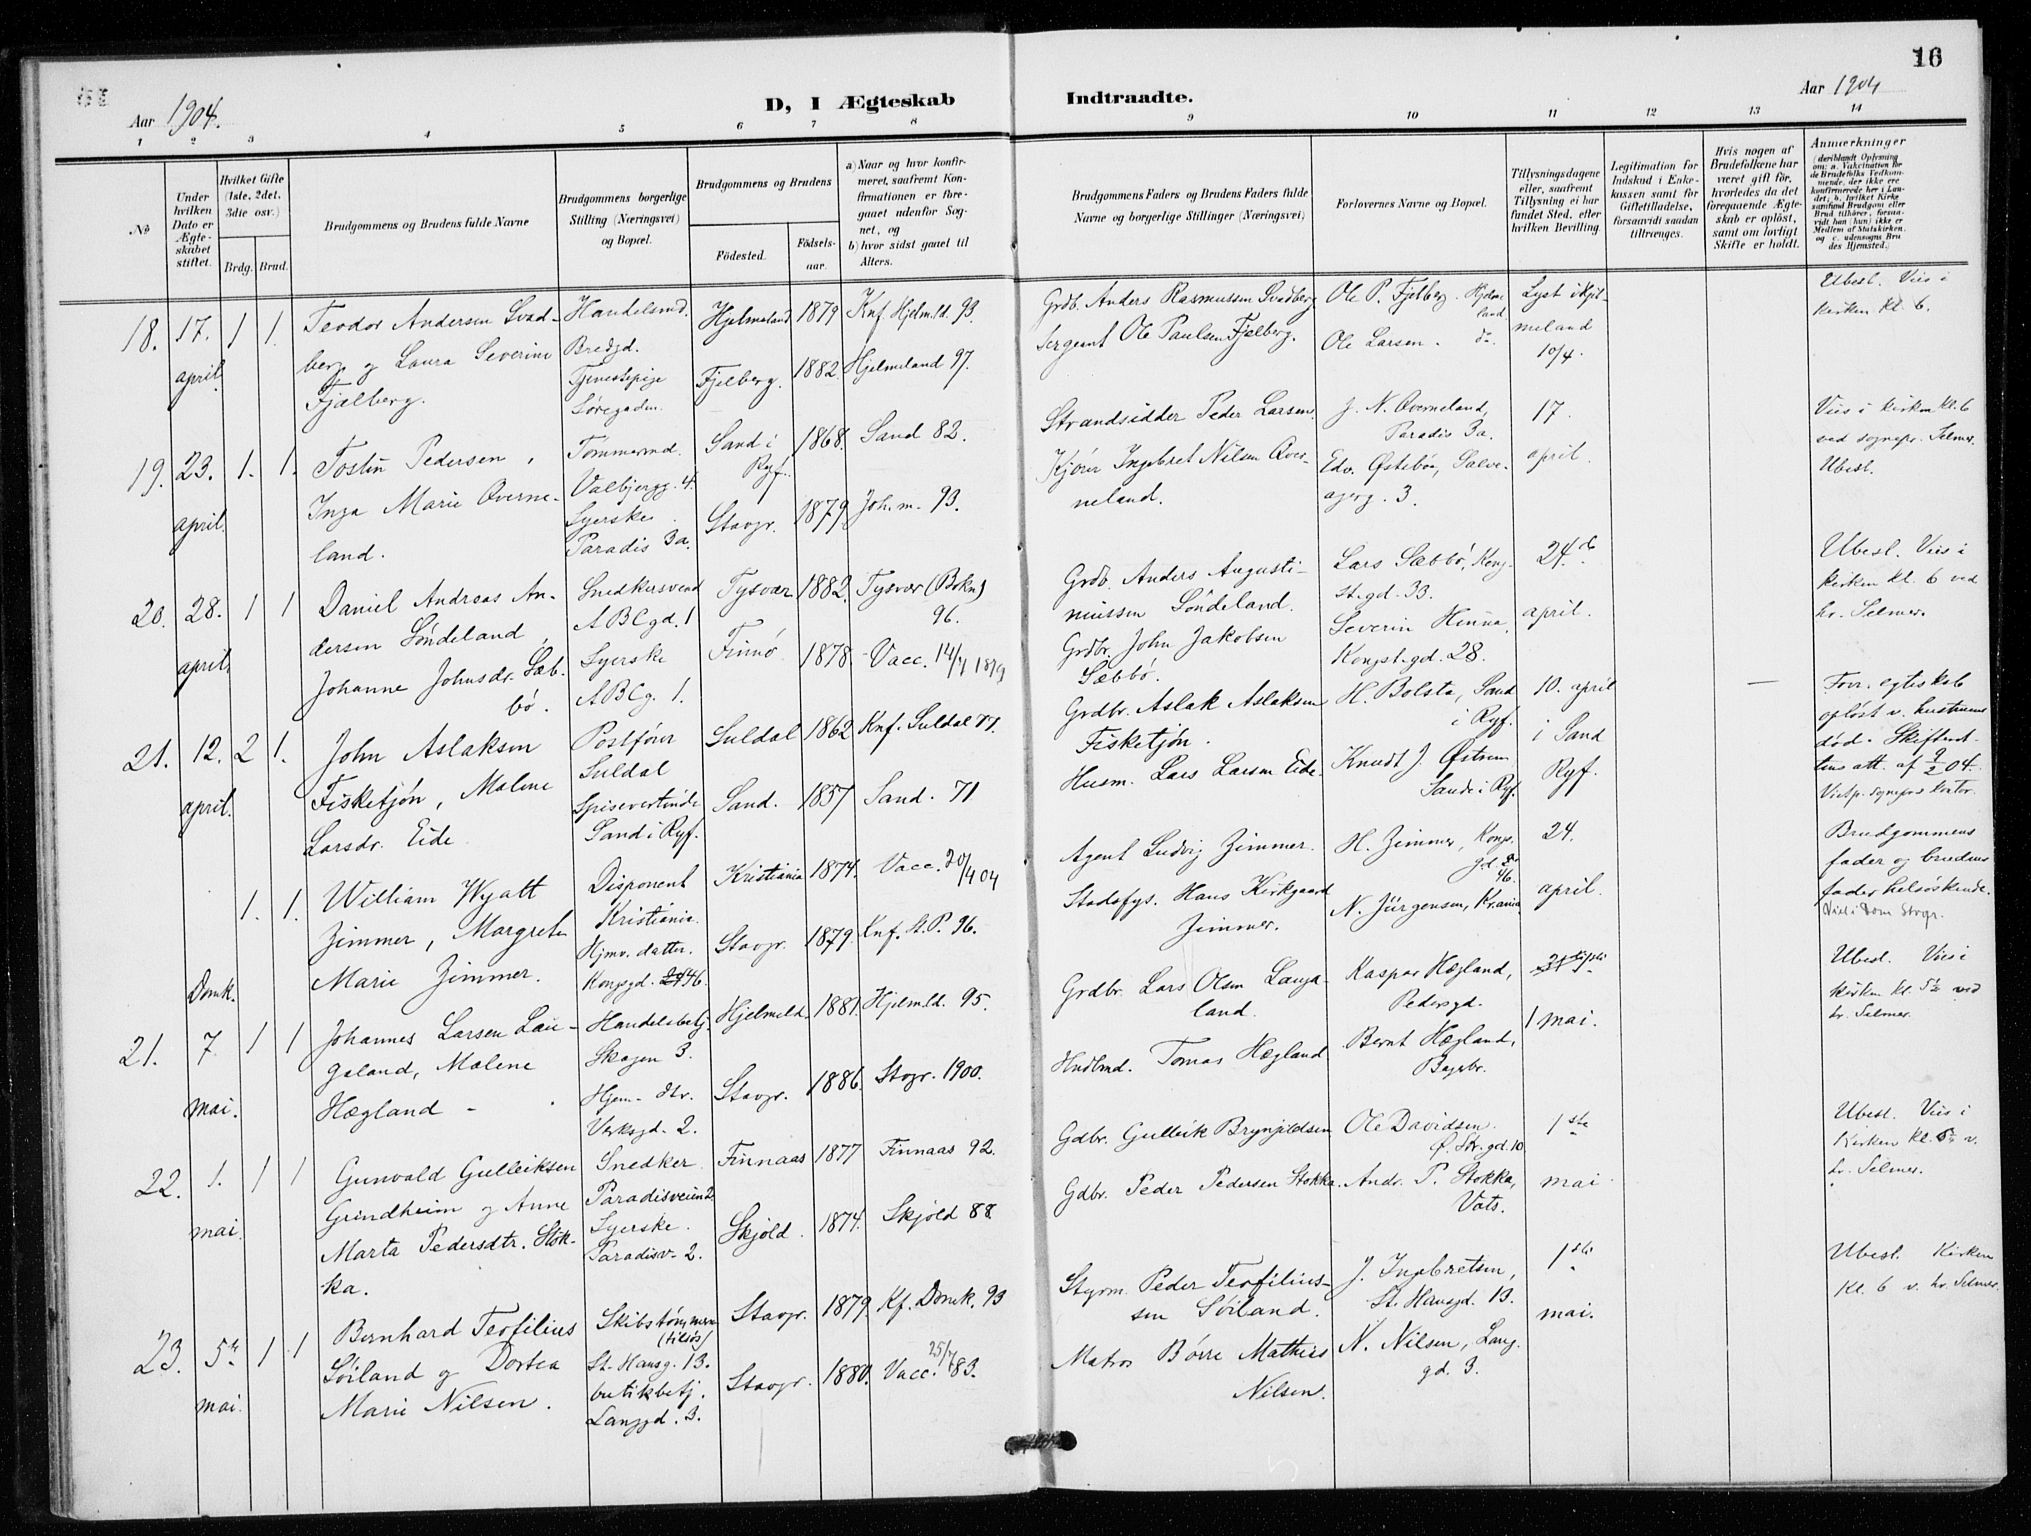 16
Aar 1904.
D, I Ægteskab Indtraadte.
Aar 1904
1 2 3 4 5 6 7 8 9 10 11 12 13 14
No
Under hvilken Dato er Ægte-skabet stiftet.
Hvilket Gifte (1ste, 2det, 3die osv.)
Brdg. Brud.
Brudgommens og Brudens fulde Navne
Brudgommens borgerlige Stilling (Næringsvei) og Bopæl.
Brudgommens og Brudens
Födested.
Födsels-aar.
a) Naar og hvor konfir-meret, saafremt Kon-firmationen er fore-gaaet udenfor Sog-net, og
b) hvor sidst gaaet til Alters.
Brudgommens Faders og Brudens Faders fulde Navne og borgerlige Stillinger (Næringsvei)
Forlovernes Navne og Bopæl.
Tillysningsdagene eller, saafremt Tillysning ei har fundet Sted, efter hvilken Bevilling.
Legitimation for Indskud i Enke-kassen samt for Giftetilladelse, forsaavidt saadan tiltrænges.
Hvis nogen af Brudefolkene har været gift för, hvorledes da det foregaaende Ægte-skab er oplöst, samt om lovligt Skifte er holdt.
Anmærkninger
(deriblandt Oplysning om: a. Vakcination for de Brudefolks Vedkom-mende, der ikke ere konfirmerede her i Lan-det; b. hvilket Kirke-samfund Brudgom eller Brud tilhörer, forsaa-vidt han (hun) ikke er Medlem af Statskirken, og c. udensogns Bru-des Hjemsted.)
18. 17. april 1 1.
Teodor Andersen Svad-
berg og Laura Severine
Fjælberg.
Handelsmd.
Bredgd.
Tjenestepige
Søregaden.
Hjelmeland 1879 Knf. Hjelmld. 93.
Fjelberg. 1882. Hjelmeland 97.
Grdb. Anders Rasmussen Svadberg
Sergeant Ole Paulsen Fjelberg.
Ole P. Fjelberg. Hjelme
land
Ole Larsen. do.
Lyst i Hjel-
meland
10/4.
Ubesl. Vies i
kirken kl. 6.
19. 23. april. 1. 1.
Tostin Pedersen,
Inga Marie Øverne-
land.
Tømmermd.
Valbjergg. 4.
Syerske.
Paradis 3a.
Sand i
Ryf. 1868. Sand 82.
Stavgr. 1879 Joh. m. 93.
Strandsidder Peder Larsen.
Kjører Ingebret Nilsen Øver-
neland.
J. N. Øverneland,
Paradis 3a.
Edv. Østebøe, Salve-
agerg. 3.
17.
april.
Vies i kirken kl. 6
ved sognepr. Selmer.
Ubesl.
20. 28. april 1 1
Daniel Andreas An-
dersen Søndeland,
Johanne Johnsdr. Sæb-
bø.
Snedkersvend
ABCgd. 1
Syerske
ABCg. 1.
Tysvær 1882. Tysvær (Bokn)
96.
Finnø 1878. Vacc. 14/7 1879
Grdb. Anders Augusti-
nussen Søndeland.
Grdbr. John Jakobsen
Sæbbø.
Lars Sæbbø, Kong-
st.gd. 33.
Severin Hinna,
Kongst.gd. 28.
24.de
april.
Ubesl. Vies i
kirken kl. 6 ved
hr. Selmer.
21. 12. april. 2 1.
John Aslaksen
Fisketjøn, Malene
Larsdr. Eide
Postfører
Suldal
Spisevertinde
Sand i Ryf.
Suldal 1862 Knf. Suldal 77.
Sand. 1857 Sand. 71
Grdbr. Aslak Aslaksen
Fisketjøn.
Husm. Lars Larsen Eide.
H. Bolsta, Sand
i Ryf.
Knudt J. Østrem
Sande i Ryf.
10. april
i Sand
Ryf.
—
Forr. egteskab
opløst v. hustruens
død. Skifteret-
tens att. af 9/2 04.
Viet p. sognepr. kontor.
Domk. 1. 1.
William Wyatt
Zimmer, Margrete
Marie Zimmer.
Disponent
Kristiania.
Hjmv. datter.
Kongsgd. 46.
Kristiania 1874. Vacc. 20/4 04
Stavgr. 1879. Knf. St. P. 96.
Agent Ludvig Zimmer.
Stadsfys. Hans Kirkgaard
Zimmer.
H. Zimmer, Kongs.
gd. 46.
N. Jürgensen, Kr.ania
24.
april.
Brudgommens
fader og brudens
fader helsøskende.
Viet i Dom Stvgr.
21. 7. mai. 1 1
Johannes Larsen Lau-
galand, Malene
Hægland
Handelsbetj.
Skagen 3.
Hjem. dtr.
Verksgd. 2.
Hjelmeld. 1881. Hjelmld. 95.
Stavgr. 1886. Stvgr. 1900.
Grdbr. Lars Olsen Lauga-
land.
Hndlmd. Tomas Hægland
Kaspar Hægland,
Pedersgd.
Bernt Hægland,
Bagebr.
1 mai.
Ubesl. Vies i
kirken kl. 5½ ved
hr. Selmer.
22. 1. mai. 1 1
Gunvald Gulleiksen
Grindheim og Anne
Marta Pedersdtr. Stok-
ka.
Snedker.
Paradisveien 2.
Syerske.
Paradisv. 2.
Finnaas 1877 Finnaas 92.
Skjold. 1874. Skjold 88.
Gdbr. Gulleik Brynjildsen
Gdbr. Peder Pedersen Stokka.
Ole Davidsen.
Ø. Str.gd. 10
Andr. P. Stokka,
Vats.
1ste
mai
Ubesl. Vies i
Kirken kl. 5½ v.
hr. Selmer.
23. 5te mai. 1 1
Bernhard Teofilius
Søiland og Dortea
Marie Nilsen.
Skibstømmerm.
St. Hansg. 13.
butikbetj.
Langgd. 3.
Stavgr. 1879. Kf. Domk. 93
Stavgr. 1880. Vacc. 25/7 83.
Styrm. Peder Teofilius-
sen Søiland.
Matros Børre Mathias
Nilsen.
J. Ingebretsen,
St. Hansgd. 13.
N. Nilsen, Lang.
gd. 3.
1ste
mai.
Ubesl. Kirken
Kl. 6 v. hr. Selmer.